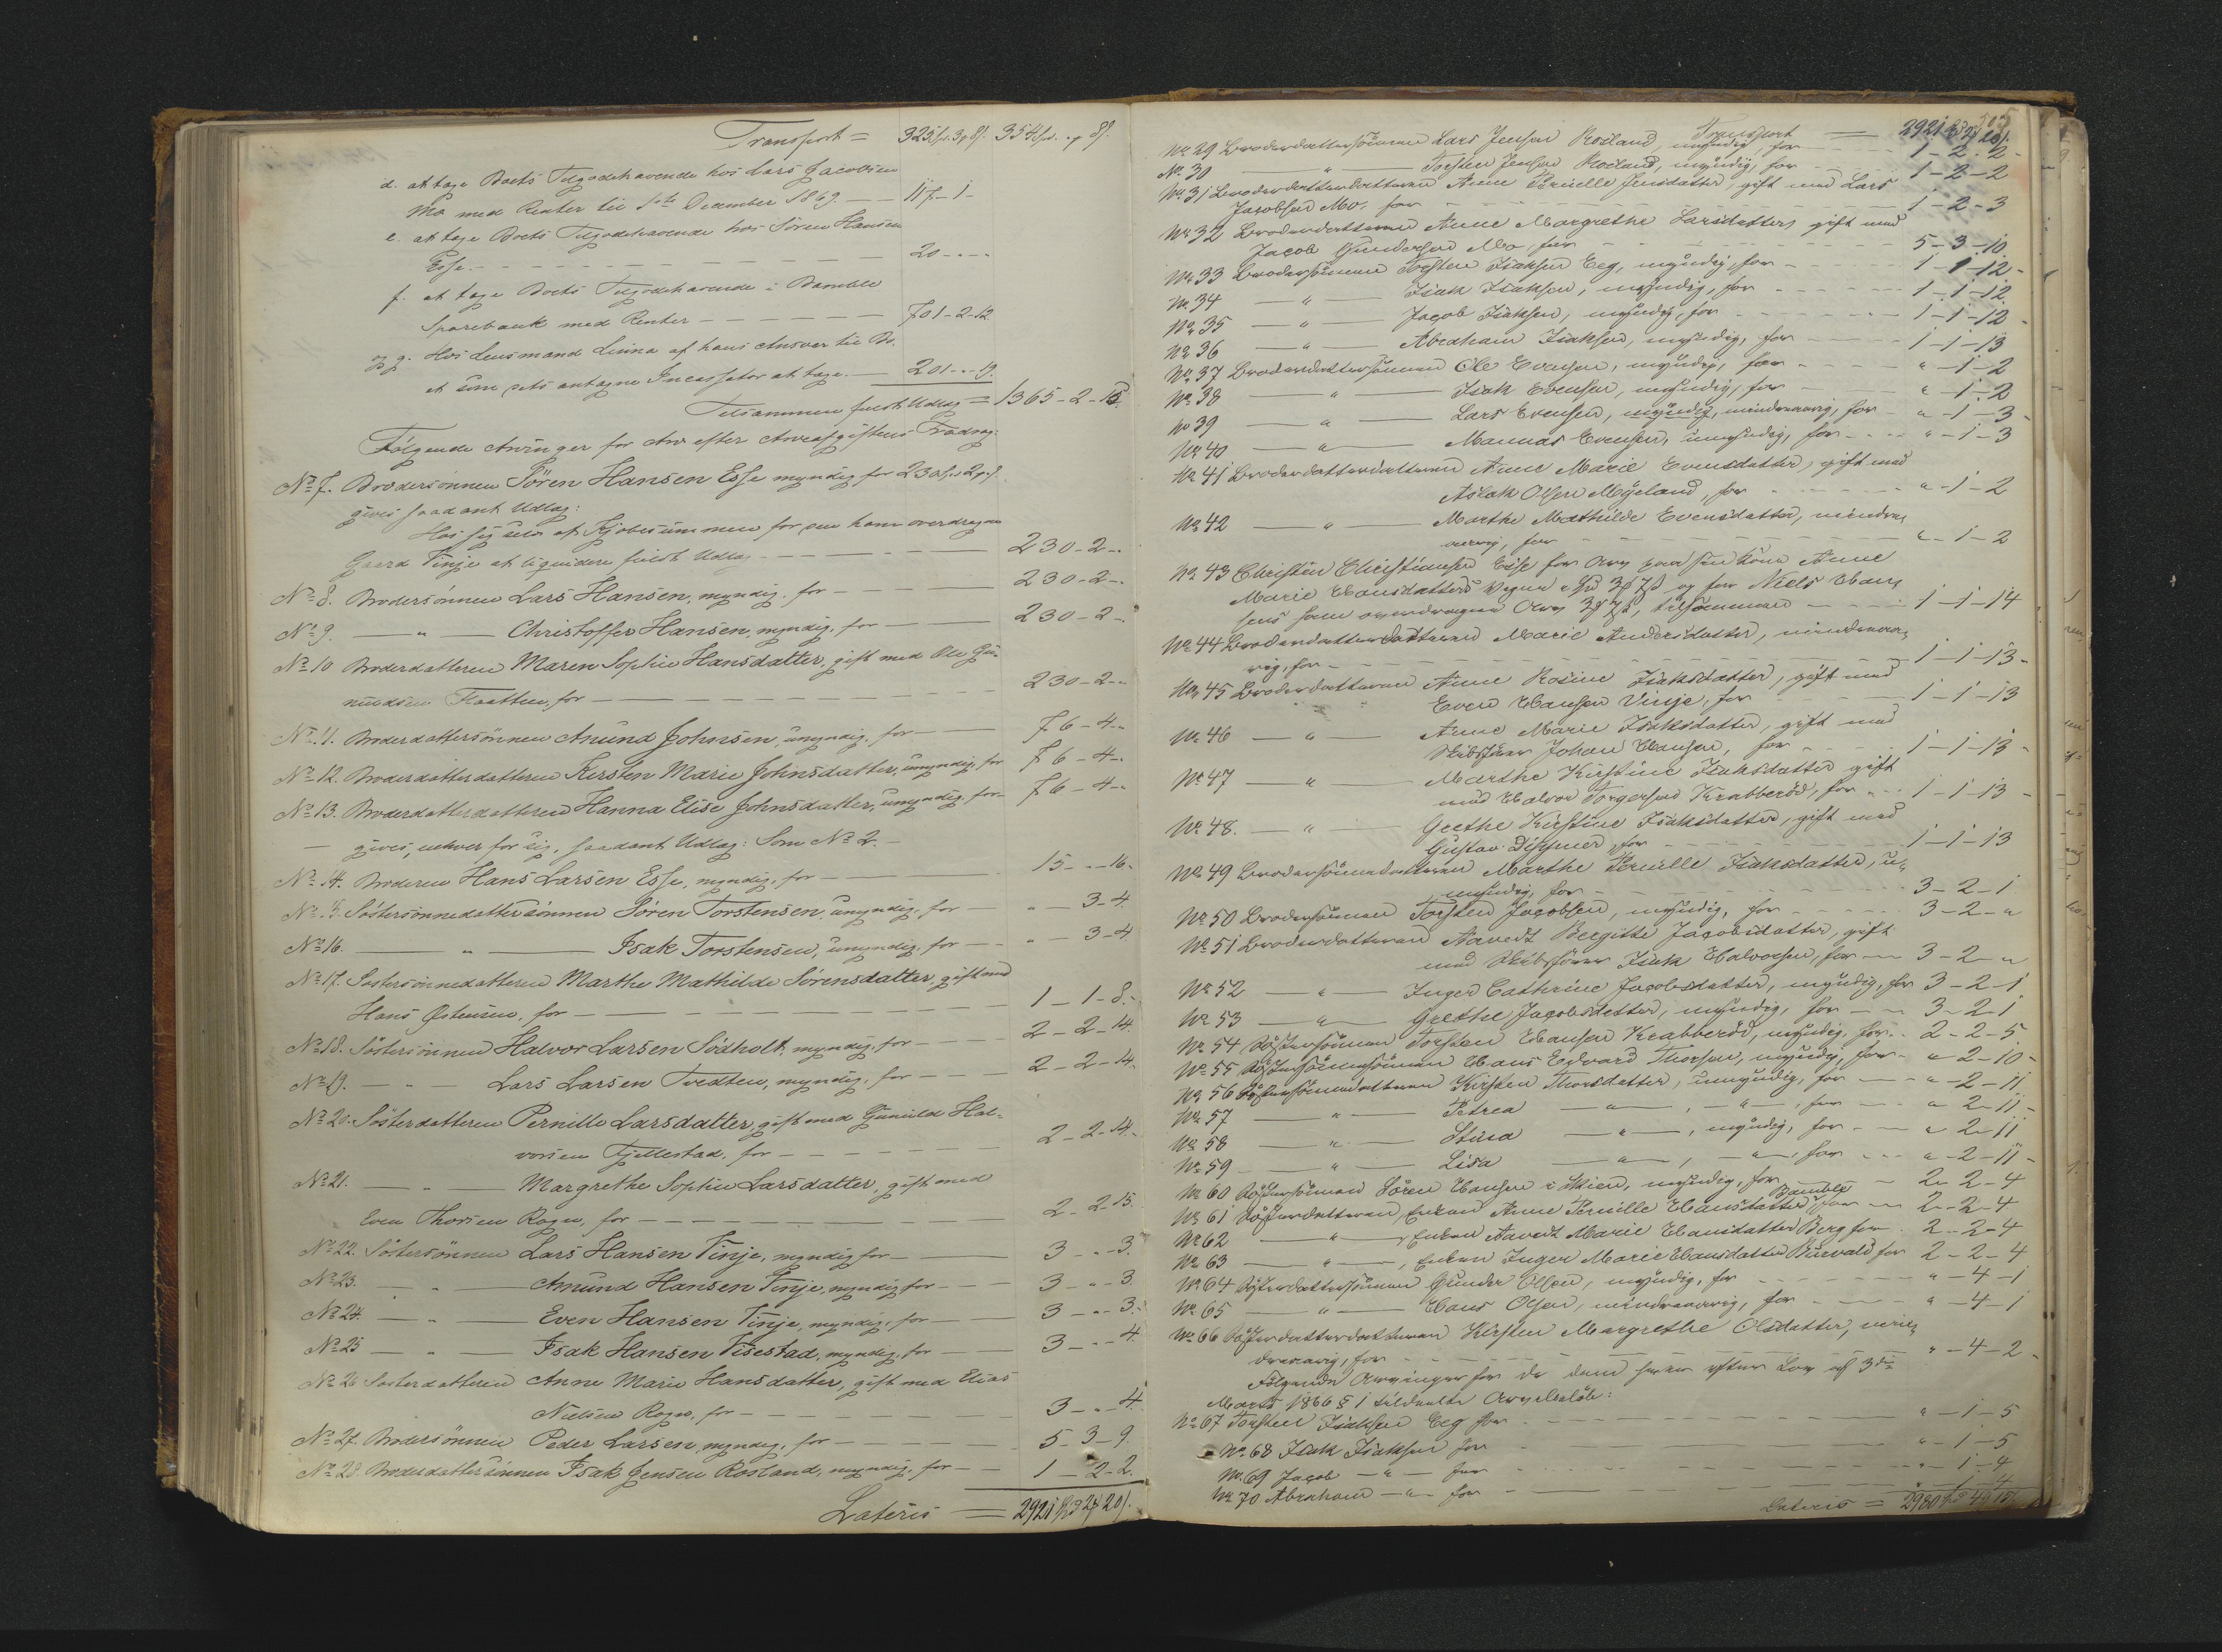 Transport = 325 Spd. 3 ß 8 s. 354 Spd. " ß 8 s.
d. at tage Boets Tilgodehavende hos Lars Jacobsen
Mo med Renter til 1ste December 1869. — 117-1-
e. at tage Boets Tilgodehavende hos Sören Hansen
Esse. — 20-"-"
f. at tage Boets Tilgodehavende i Bamble
Sparebank med Renter — 701-2-12
og g. Hos Lensmand Linna af hans Ansvar til Bo-
et som dets antagne Incassator at tage. — 201-"-19.
Tilsammen fuldt Udlæg = 1365-2-15
Følgende Arvinger for Arv efter Arveafgiftens Fradrag:
No 7. Brodersönnen Sören Hansen Esse myndig for 230 Spd. 2 ß " s.
gives saadant Udlæg:
Hos sig selv af Kjøbesummen for den ham overdragne
Gaard Vinje at liqvidere fuldt Udlæg — 230-2-"
No 8. Brodersönnen Lars Hansen, myndig, for — 230-2-"
No 9. — " — Christoffer Hansen, myndig, for — 230-2-"
No 10 Broderdatteren Maren Sophie Hansdatter, gift med Ole Gu-
nundsen Flaatten, for — 230-2-"
No 11. Broderdattersönnen Anund Johnsen, umyndig, for — 76-4-"
No 12. Broderdatterdatteren Kirsten Marie Johnsdatter, umyndig, for 76-4-"
No 13. Broderdatterdatteren Hanna Elise Johnsdatter, umyndig, for — 76-4-"
— gives, enhver for sig, saadant Udlæg: Som No 2. —
No 14. Broderen Hans Larsen Esse, myndig, for — 15-"-16.
No 15. Söstersönnedattersönnen Sören Torstensen, umyndig, for — "-3-4.
No 16. — " — Isak Torstensen, umyndig, for — "-3-4
No 17. Söstersönnedatteren Marthe Mathilde Sörensdatter, gift med
Hans Østensen, for — 1-1-8.
No 18. Söstersönnen Halvor Larsen Södholt, myndig, for — 2-2-14.
No 19. — " — Lars Larsen Tvedten, myndig, for — 2-2-14.
No 20. Sösterdatteren Pernille Larsdatter, gift med Gunuld Hal-
vorsen Fjellestad, for — 2-2-14.
No 21. — " — Margrethe Sophie Larsdatter, gift med
Even Thorsen Rogn, for — 2-2-15.
No 22. Söstersönnen Lars Hansen Vinje, myndig for — 3-"-3.
No 23. — " — Amund Hansen Vinje, myndig for — 3-"-3
No 24. — " — Even Hansen Vinje, myndig, for — 3-"-3.
No 25 — " — Isak Hansen Visestad, myndig, for — 3-"-4.
No 26 Sösterdatteren Anne Marie Hansdatter, gift med Elias
Nielsen Rogn, for — 3-"-4.
No 27. Brodersönnen Peder Larsen, myndig, for — 5-3-9.
No 28. Broderdattersönnen Isak Jensen Rosland, myndig, for — 1-2-2.
Lateris = 2921 Spd 2 ß 20 s.
Transport = 2921 Spd 2 ß 20 s.
No 29 Broderdattersönnen Lars Jensen Rosland, myndig, for — 1-2-2
No 30 — " — Torsten Jensen Rosland, myndig, for — 1-2-2
No 31 Broderdatterdatteren Anne Pernille Jensdatter, gift med Lars
Jacobsen Mo, for — 1-2-3
No 32 Broderdatteren Anne Margrethe Larsdatter, gift med
Jacob Gundersen Mo, for — 5-3-10
No 33 Brodersönnen Torsten Isaksen Eeg, myndig, for — 1-1-12
No 34 — " — Isak Isaksen, myndig, for — 1-1-12
No 35 — " — Jacob Isaksen, myndig, for — 1-1-12
No 36 — " — Abraham Isaksen, myndig, for — 1-1-13
No 37 Broderdattersönnen Ole Evensen, myndig, for — "-1-2
No 38 — " — Isak Evensen, myndig, for — "-1-2
No 39 — " — Lars Evensen, myndig, mindreaarig, for "-1-3
No 40 — " — Mannas Evensen, umyndig, for — "-1-3
No 41 Broderdatterdatteren Anne Marie Evensdatter, gift med
Aslak Olsen Myeland, for — "-1-2
No 42 — " — Marthe Mathilde Evensdatter, mindre-
aarig, for — "-1-2
No 43 Christen Christiansen Esse for Arv paa sin Kone Anne
Marie Hansdatters Vegne " Spd 3 ß 7 s og for Niels Han-
sens ham overdragne Arv 3 ß 7 s, tilsammen — 1-1-14
No 44 Broderdatterdatteren Marie Andersdatter, mindreaa-
rig, for — 1-1-13
No 45 Broderdatteren Anne Rosine Isaksdatter, gift med
Even Hansen Vinje, for — 1-1-13
No 46 — " — Anne Marie Isaksdatter, gift med
Skibsfører Johan Hansen, for — 1-1-13
No 47 — " — Marthe Kirstine Isaksdatter gift
med Halvor Torgersen Krabberød, for — 1-1-13
No 48. — " — Grethe Kirstine Isaksdatter, gift med
Gustav Dissmer, for — 1-1-13
No 49 Brodersönnedatteren Marthe Pernille Isaksdatter, u-
myndig, for — 3-2-1
No 50 Brodersönnen Torsten Jacobsen, myndig, for — 3-2-"
No 51 Broderdatteren Aavedt Bergitte Jacobsdatter, gift
med Skibsfører Isak Halvorsen, for — 3-2-"
No 52 — " — Inger Cathrine Jacobsdatter, myndig, for 3-2-1
No 53 — " — Grethe Jacobsdatter, myndig, for — 3-2-1
No 54 Söstersönnen Torsten Hansen Krabberød, myndig, for — 2-2-5
No 55 Söstersönnesönnen Hans Edvard Thorsen, myndig, for — "-2-10
No 56 Söstersönnedatteren Kirsten Thorsdatter, umyndig, for — "-2-11
No 57 — " — Petrea — " —, — " —, for — "-2-11
No 58 — " — Stina — " —, myndig, for — "-2-11
No 59 — " — Lisa — " —, — " —, for — "-2-11
No 60 Söstersönnen Sören Hansen i Skien, myndig, for — 2-2-4
No 61 Sösterdatteren, Enken Anne Pernille Hansdatter Bamble, for — 2-2-4
No 62 — " —, Enken Aavedt Marie Hansdatter Berg for 2-2-4
No 63 — " —, Enken Inger Marie Hansdatter for 2-2-4
No 64 Sösterdattersönnen Gunder Olsen, myndig, for — "-4-1
No 65 — " — Hans Olsen, mindreaarig, for — "-4-1
No 66 Sösterdatterdatteren Kirsten Margrethe Olsdatter, min-
dreaarig, for — "-4-2
Følgende Arvinger for de dem efter Lov af 3die
Marts 1866 § 1 tildeelte Arvebeløb:
No 67 Torsten Isaksen Eeg for — "-1-5
No 68 Isak Isaksen for — "-1-5
No 69 Jacob — " — for — "-1-4
No 70 Abraham — " — for — "-1-4
Lateris = 2980 Spd 4 ß 15 s.